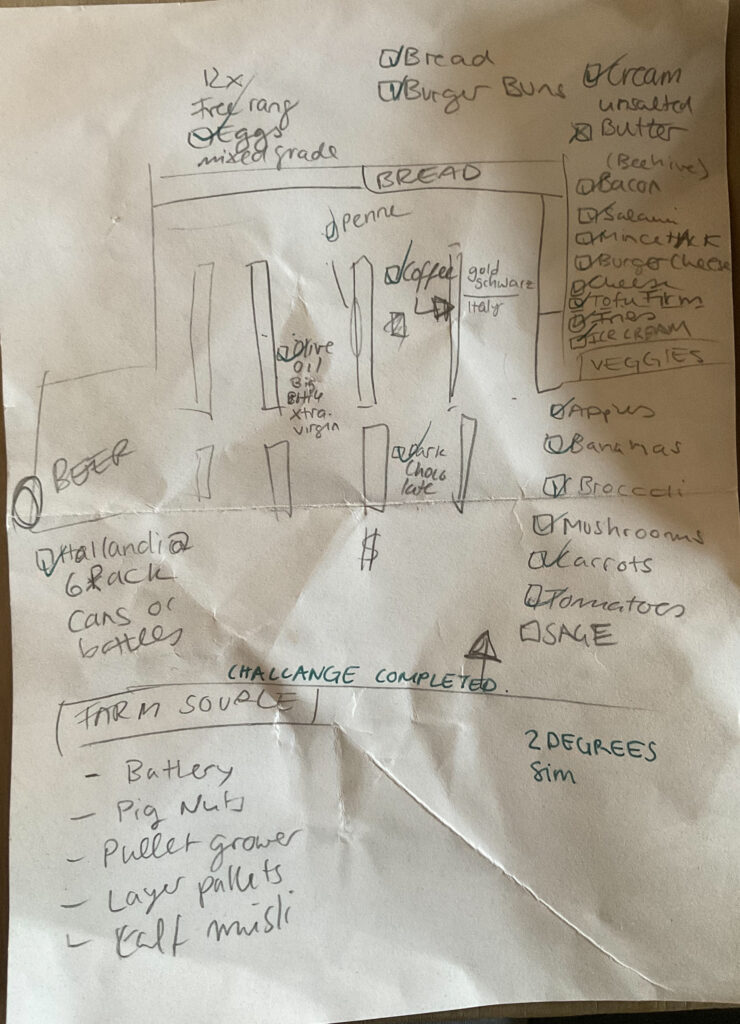 12x
Free rang
Eggs
mixed grade
Bread
Burger Buns
Cream
unsalted
Butter
(Beehive)
Bacon
BREAD
Penne
Coffee
gold
Schwarz
Italy
Salami
Burger Cheese
Cheese
Tofu Firm
Fries
ICE CREAM
VEGGIES
Olive
Oil
Big
xtra.
virgin
Dark
Choco
late
Apples
Bananas
Broccoli
Mushrooms
Carrots
Tomatoes
SAGE
BEER
$
6 Pack
Cans or
CHALLANGE COMPLETED.
FARM SOURCE
- Battery
- Pig Nuts
- Pullet grower
- Layer pallets
- Calf misli
2 DEGREES
Sim